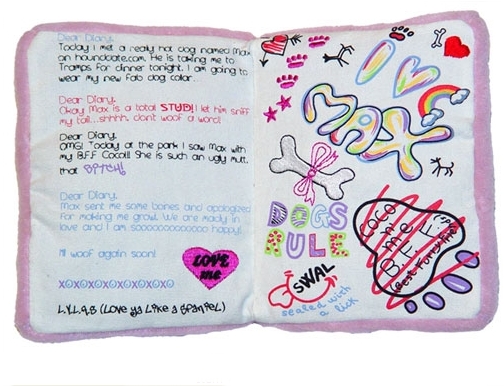 Dear Diary,
Today I met a really hot dog named Max
on hounddate.com. He is taking me to
Tramps for dinner tonight. I am going to
wear my new fab dog collar...
Dear Diary,
Okay Max is a total STUD! I let him sniff
my tail...shhhh, dont woof a word!
Dear Diary,
OMG! Today at the park I saw Max with
my B.F.F Coco!! She is such an ugly mutt,
that BITCH!
Dear Diary,
Max sent me some bones and apologized
for making me growl. We are madly in
love and I am soooooooooooooo happy!
I'll woof again soon!
LOVE
me
XOXOXOXOXOXOXOXO
L.Y.L.A.S (Love ya Like a Spaniel)
I
MAX
DOGS
RULE
SWAL
sealed with
a lick
COCO
n
me
B.F.F.
(Best Furry Friends)